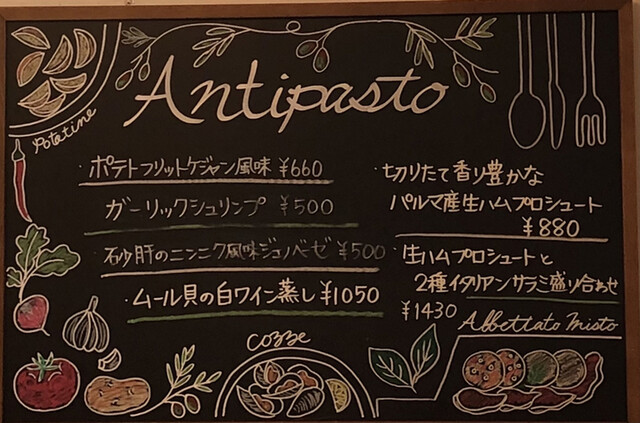 Antipasto
Patatine
・ポテトフリットケジャン風味 ¥660
ガーリックシュリンプ ¥500
・砂肝のニンニク風味ジェノベーゼ ¥500
・ムール貝の白ワイン蒸し ¥1050
・切りたて香り豊かな
パルマ産生ハムプロシュート
¥880
・生ハムプロシュートと
2種イタリアンサラミ盛り合わせ
¥1430
Affettato misto
Cozze